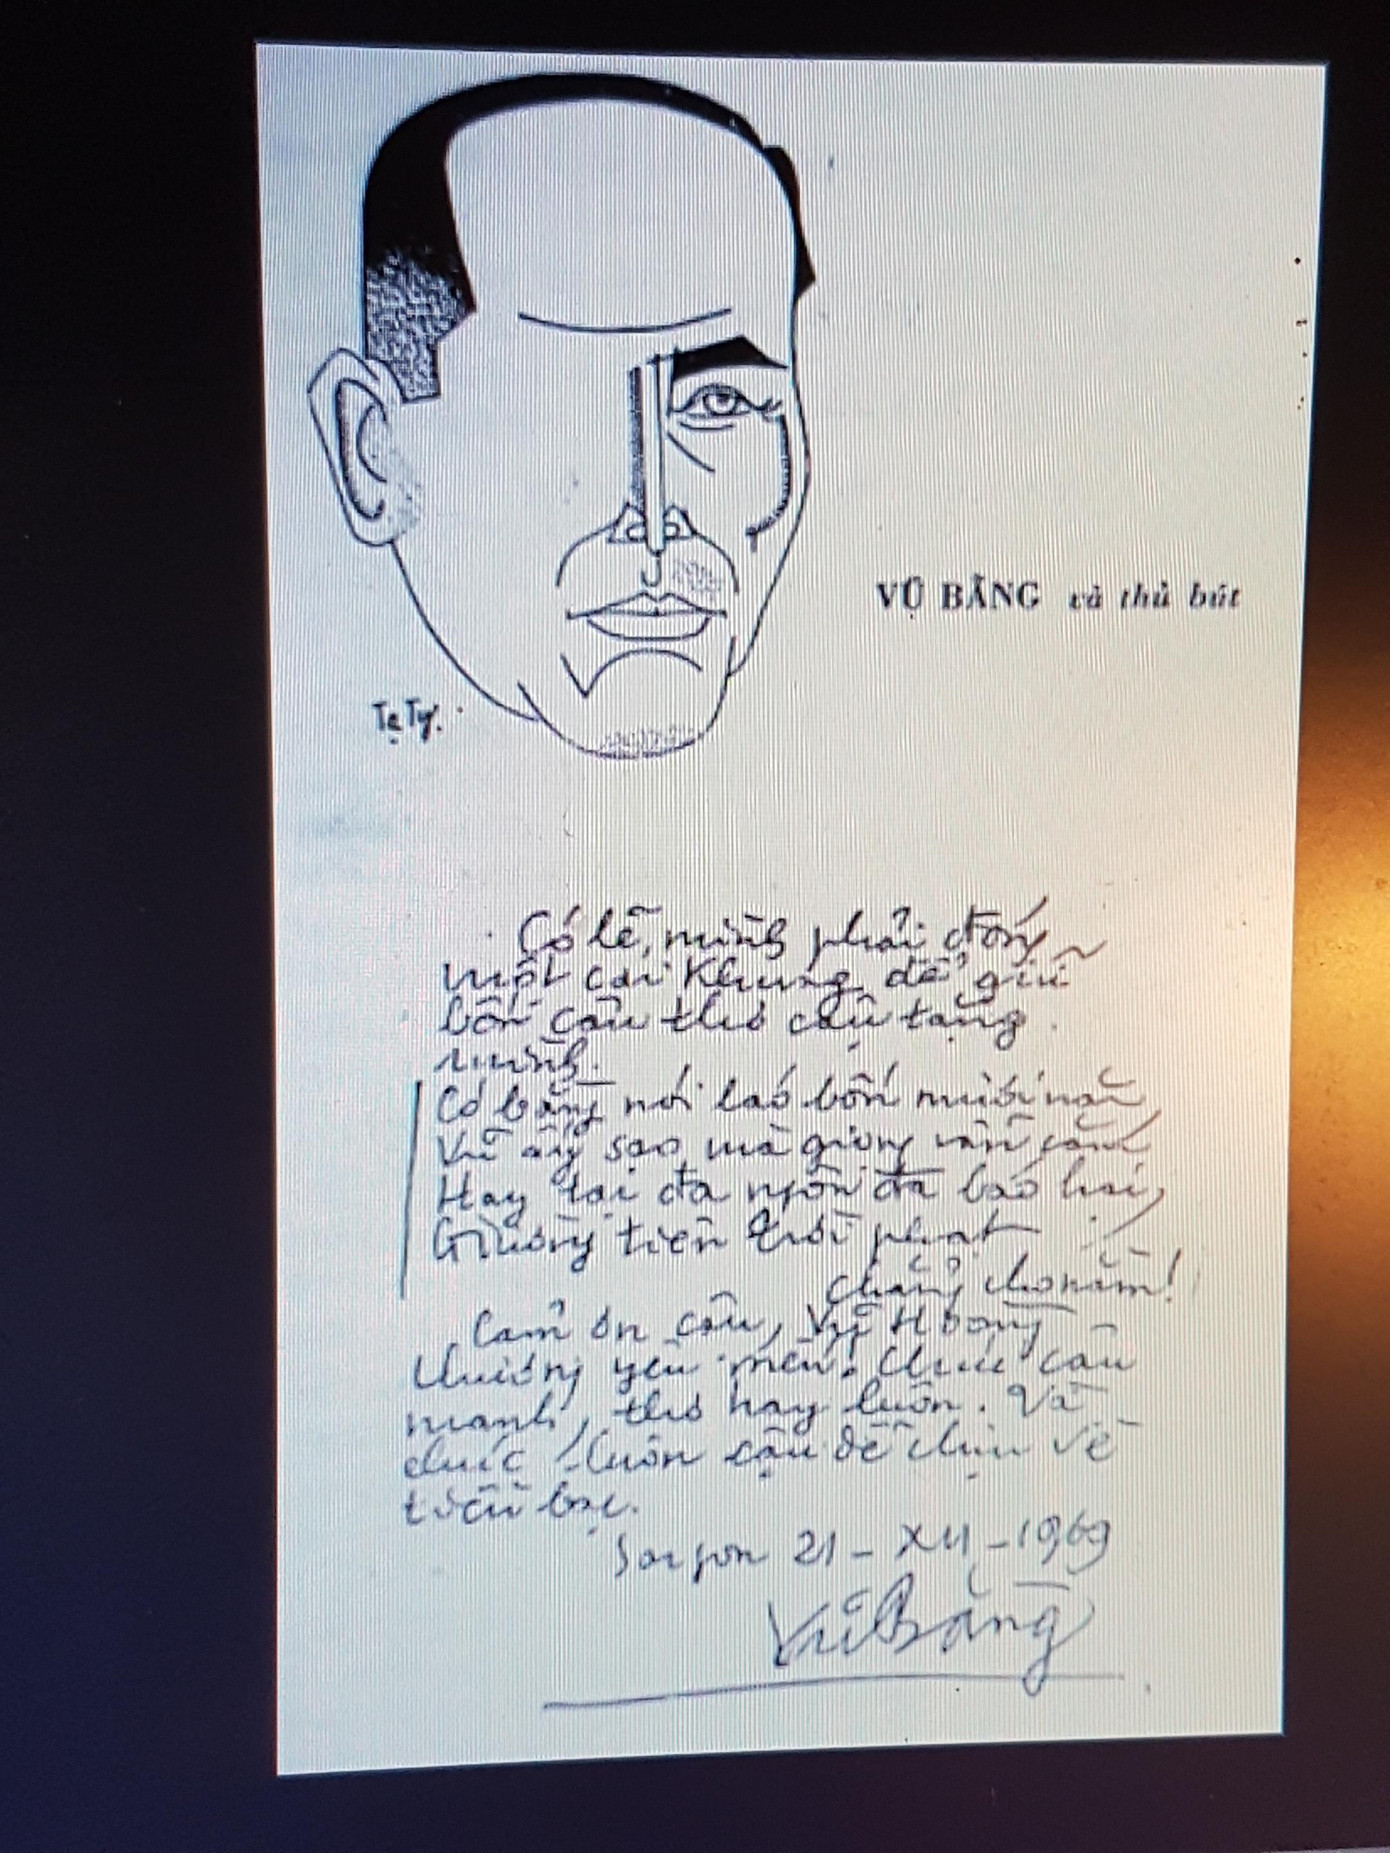 VŨ BẰNG và thủ bút
Tạ Tỵ.
Có lẽ, mình phải đóng
một cái khung để giữ
bốn câu thơ cậu tặng
mình.
Có bằng nói láo bốn mươi năm
Vũ ấy sao mà giọng vẫn
Hay tại đa ngôn đa báo hại,
Giường tiên trời phạt
chẳng cho nằm!
Cảm ơn cậu, Vũ H
thương yêu mến! Chúc cậu
mạnh, thơ hay luôn. Và
chúc luôn cậu dễ chịu về
bạc.
Saigon 21 - XII - 1969
Vũ Bằng